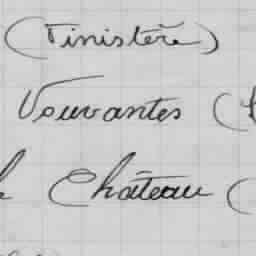 (Finistère)
Vouvantes (
Château (